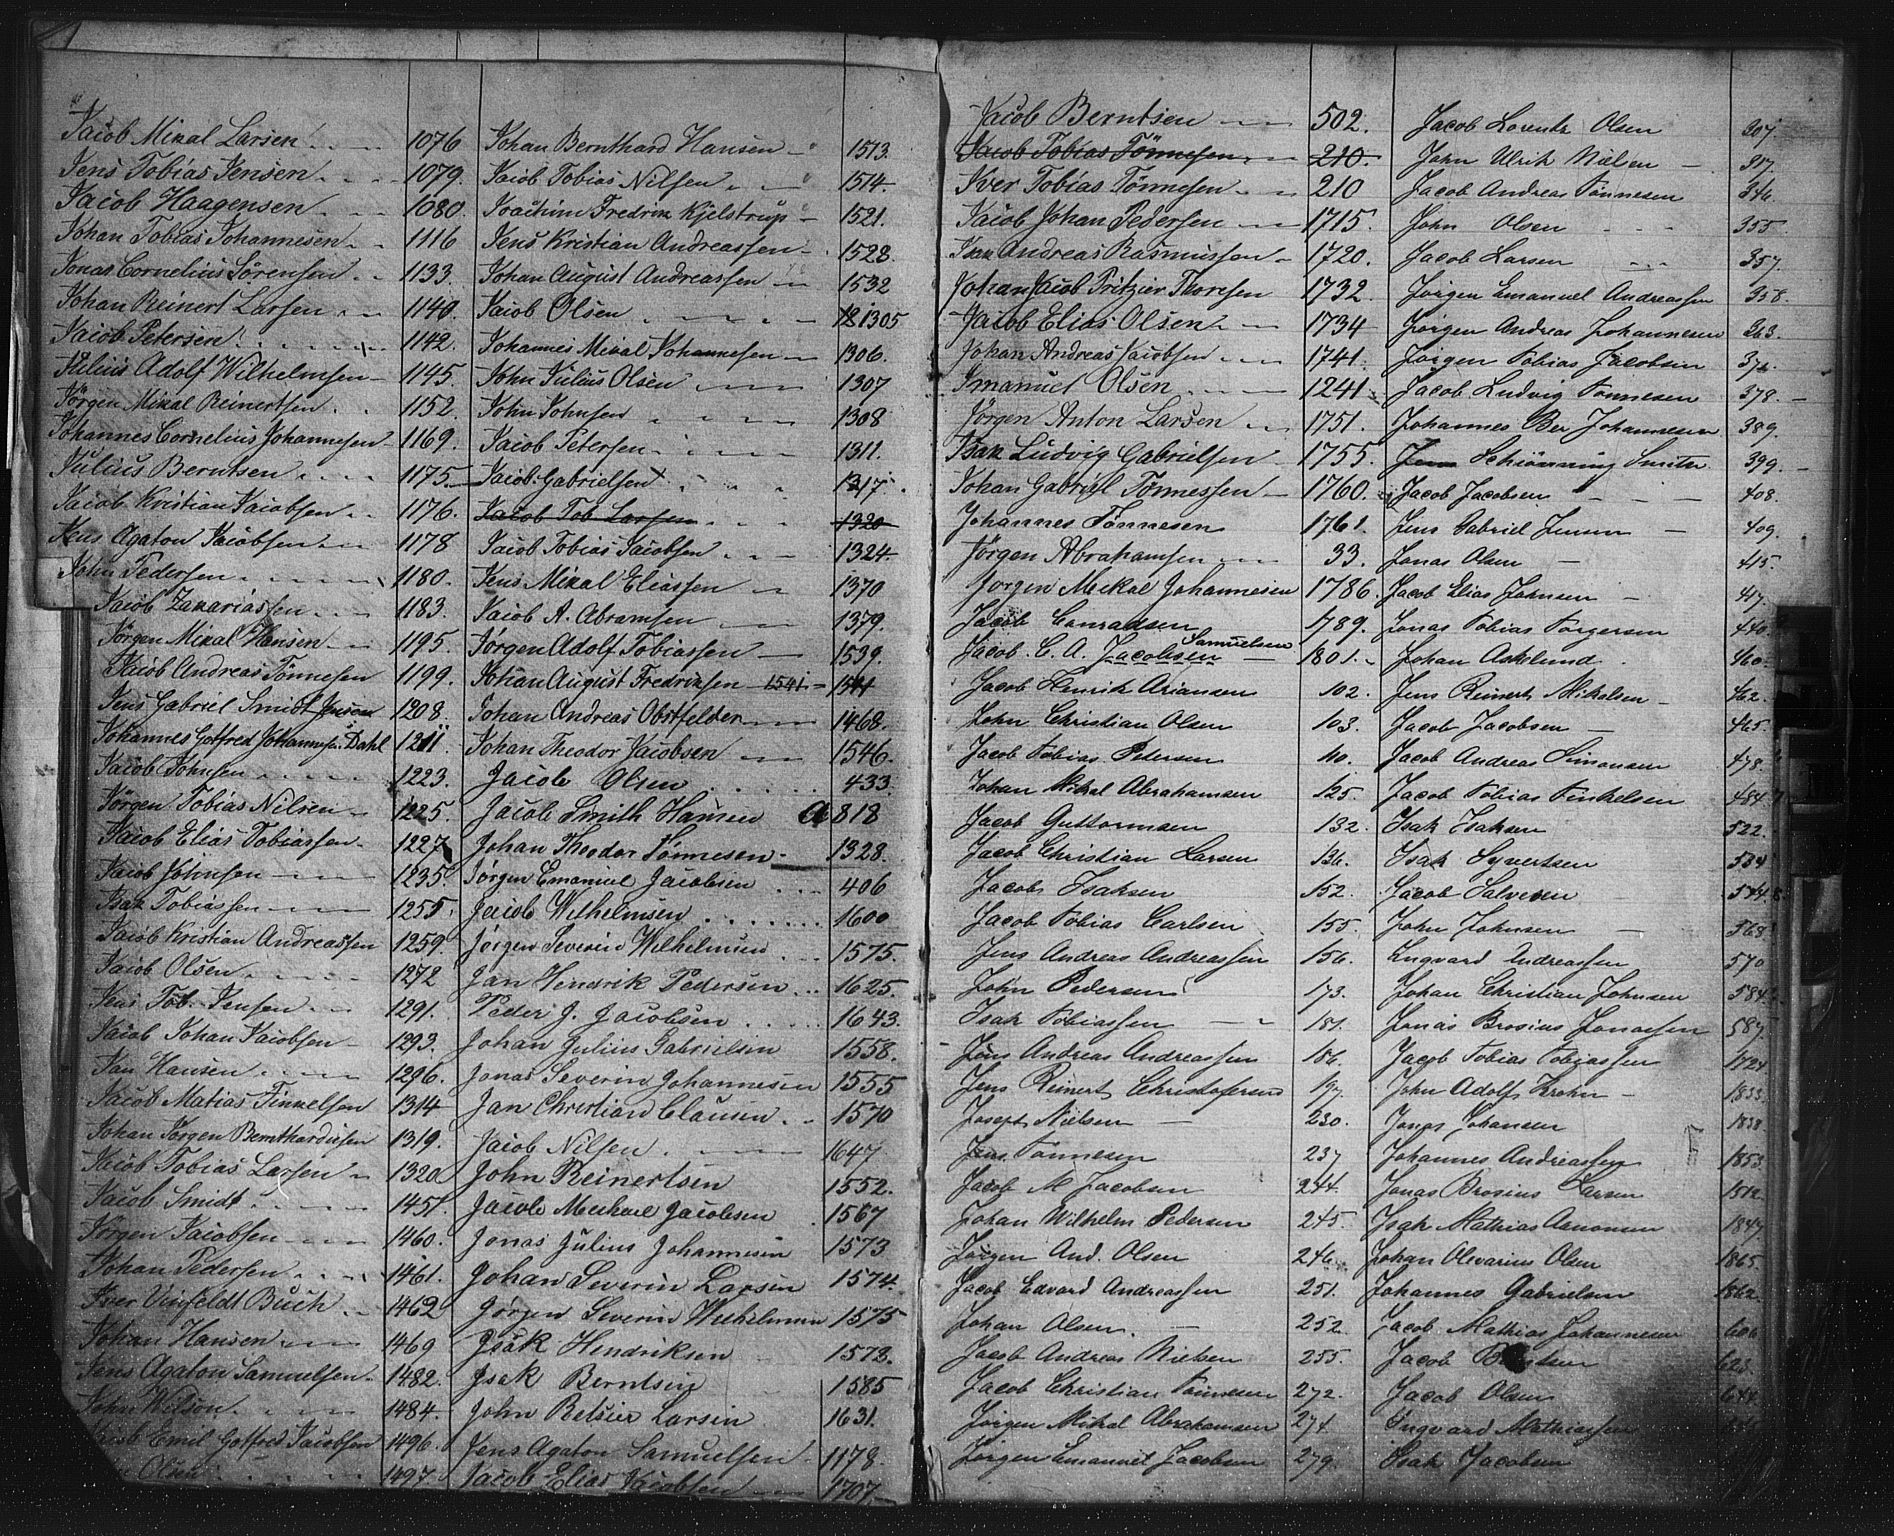 Jacob Mikal Larsen 1076
Jens Tobias Jensen 1079.
Jacob Haagensen 1080.
Johan Tobias Johannesen 1116
Jonas Cornelius Sörensen 1133.
Johan Reinert Larsen 1140.
Jacob Petersen 1142.
Julius Adolf Wilhelmsen 1145.
Jörgen Mikal Reinertsen 1152.
Johannes Cornelius Johannesen 1169.
Julius Berntsen 1175.
Jacob Kristian Jacobsen 1176.
Jens Agaton Jacobsen 1178
John Pedersen 1180.
Jacob Zakariassen 1183.
Jörgen Mikal Hansen 1195.
Jacob Andreas Tönnesen 1199.
Jens Gabriel Smidt Jensen 1208.
Johannes Gotfred Johannesen Dahl 1211.
Jacob Johnsen 1223.
Jörgen Tobias Nilsen 1225.
Jacob Elias Tobiassen 1227
Jacob Johnsen 1235.
Isak Tobiassen 1255.
Jacob Kristian Andreassen 1259.
Jacob Olsen 1272
Jens Tob. Jensen 1291.
Jacob Johan Jacobsen 1293.
Jan Hansen 1296.
Jacob Matias Finkelsen 1314
Johan Jörgen Bernthardusen 1319.
Jacob Tobias Larsen 1320
Jacob Smidt 1457.
Jörgen Jacobsen 1460.
Johan Pedersen 1461.
Iver Vinfeldt Buch 1462
Johan Hansen 1469
Jens Agaton Samuelsen 1482.
John Wilson 1484.
Jacob Emil Gotfred Jacobsen 1496.
Olsen 1497.
Johan Bernthard Hansen 1513.
Jacob Tobias Nilsen 1514.
Joachim Fredrik Kjelstrup 1521.
Jens Kristian Andreassen 1528.
Johan August Andreassen 1532
Jacob Olsen 1305
Johannes Mikal Johannesen 1306.
John Julius Olsen 1307
John Johnsen 1308
Jacob Petersen 1311.
Jacob Gabrielsen 1317.
Jacob Tob Larsen 1320
Jacob Tobias Jacobsen 1324.
Jens Mikal Eliassen 1370
Jacob A. Abramsen 1379.
Jörgen Adolf Tobiassen 1539.
Johan August Fredriksen 1541 1541
Johan Andreas Obstfelder 1468.
Johan Theodor Jacobsen 1546.
Jacob Olsen 433.
Jacob Smith Hansen a 818
Johan Theodor Tönnesen 1328.
Jörgen Emanuel Jacobsen 406
Jacob Wilhelmsen 1600
Jørgen Severin Wilhelmsen 1575.
Jan Hendrik Pedersen 1625.
Peder J. Jacobsen 1643.
Johan Julius Gabrielsen 1558.
Jonas Severin Johannesen 1555
Jan Christian Clausen 1570
Jacob Nilsen 1647
John Reinertsen 1552.
Jacob Michael Jacobsen 1567
Jonas Julius Johannesen 1573
Johan Severin Larsen 1574.
Jørgen Severin Wilhelmsen 1575
Isak Hendriksen 1578.
Isak Berntsen 1585
John Belsier Larsen 1631.
Jens Agaton Samuelsen 1178.
Jacob Elias Jacobsen 1707.
Jacob Berntsen 502.
Jacob Tobias Tönnesen 210.
Iver Tobias Tönnesen 210
Jacob Johan Pedersen 1715.
Isak Andreas Rasmussen 1720.
Johan Jacob Pritzier Thorsen 1732.
Jacob Elias Olsen 1734
Johan Andreas Jacobsen 1741.
Imanuel Olsen 1241
Jörgen Anton Larsen 1751.
Isak Ludvig Gabrielsen 1755.
Johan Gabriel Tönnessen 1760.
Johannes Tönnesen 1761.
Jörgen Abrahamsen 33.
Jorgen Mekal Johannesen 1786.
Jacob Conradsen 1789.
Jacob. C. A. Jacobsen Samuelsen 1801.
Jacob Henrik Ariansen 102.
John Christian Olsen 103.
Jacob Tobias Pedersen 110.
Johan Mikal Abrahamsen 125.
Jacob Guttormsen 132.
Jacob Christian Larsen 136.
Jacob Isaksen 152.
Jacob Tobias Carlsen 155.
Jens Andreas Andreassen 156.
John Pedersen 173.
Isak Tobiassen 181.
Jens Andreas Andreassen 156.
Jens Reinert Christofersen 197.
Joseph Nielsen 230.
Jens Tønnesen 237
Jacob M Jacobsen 244.
Johan Wilhelm Pedersen 245.
Jörgen And. Olsen 246.
Jacob Edvard Andreassen 251.
Johan Olsen 252.
Jacob Andreas Nielsen 255.
Jacob Christian Tönnesen 272.
Jørgen Mikal Abrahamsen 274.
Jørgen Emanuel Jacobsen 279.
Jacob Lorentz Olsen 307.
John Ulrik Nielsen 317.
Jacob Andreas Tønnesen 346.
John Olsen 355.
Jacob Larsen 357.
Jørgen Emanuel Andreassen 358.
Jørgen Andreas Johannesen 363.
Jørgen Tobias Jacobsen 374.
Jacob Ludvig Tønnesen 378.
Johannes Ber Johannesen 389.
Schiönning Smith 399.
Jacob Jacobsen 408.
Jens Gabriel Jensen 409.
Jonas Olsen 415.
Jacob Elias Johnsen 417.
Jonas Tobias Torgersen 440.
Johan Asklund 460.
Jens Reinert Mikelsen 462.
Jacob Jacobsen 465.
Jacob Andreas Simonsen 478.
Jacob Tobias Finkelsen 484.
Isak Isaksen 522.
Isak Syvertsen 534.
Jacob Salvesen 544.
John Johnsen 568.
Ingvard Andreassen 570
Johan Christian Johnsen 584.
Jonas Brosius Jonassen 587.
Jacob Tobias Tobiassen 1724.
John Adolf Krohn 1833.
Jonas Johansen 1838.
Johannes Andreassen 1853.
Jonas Brosius Larsen 1512.
Isak Mathias Aanonsen 1847.
Johan Olevarius Olsen 1865.
Johannes Gabrielsen 1862.
Jacob Mathias Johannesen 606
Jacob 623.
Jacob Olsen 644.
Ingvard Mathiassen
Isak Jacobsen